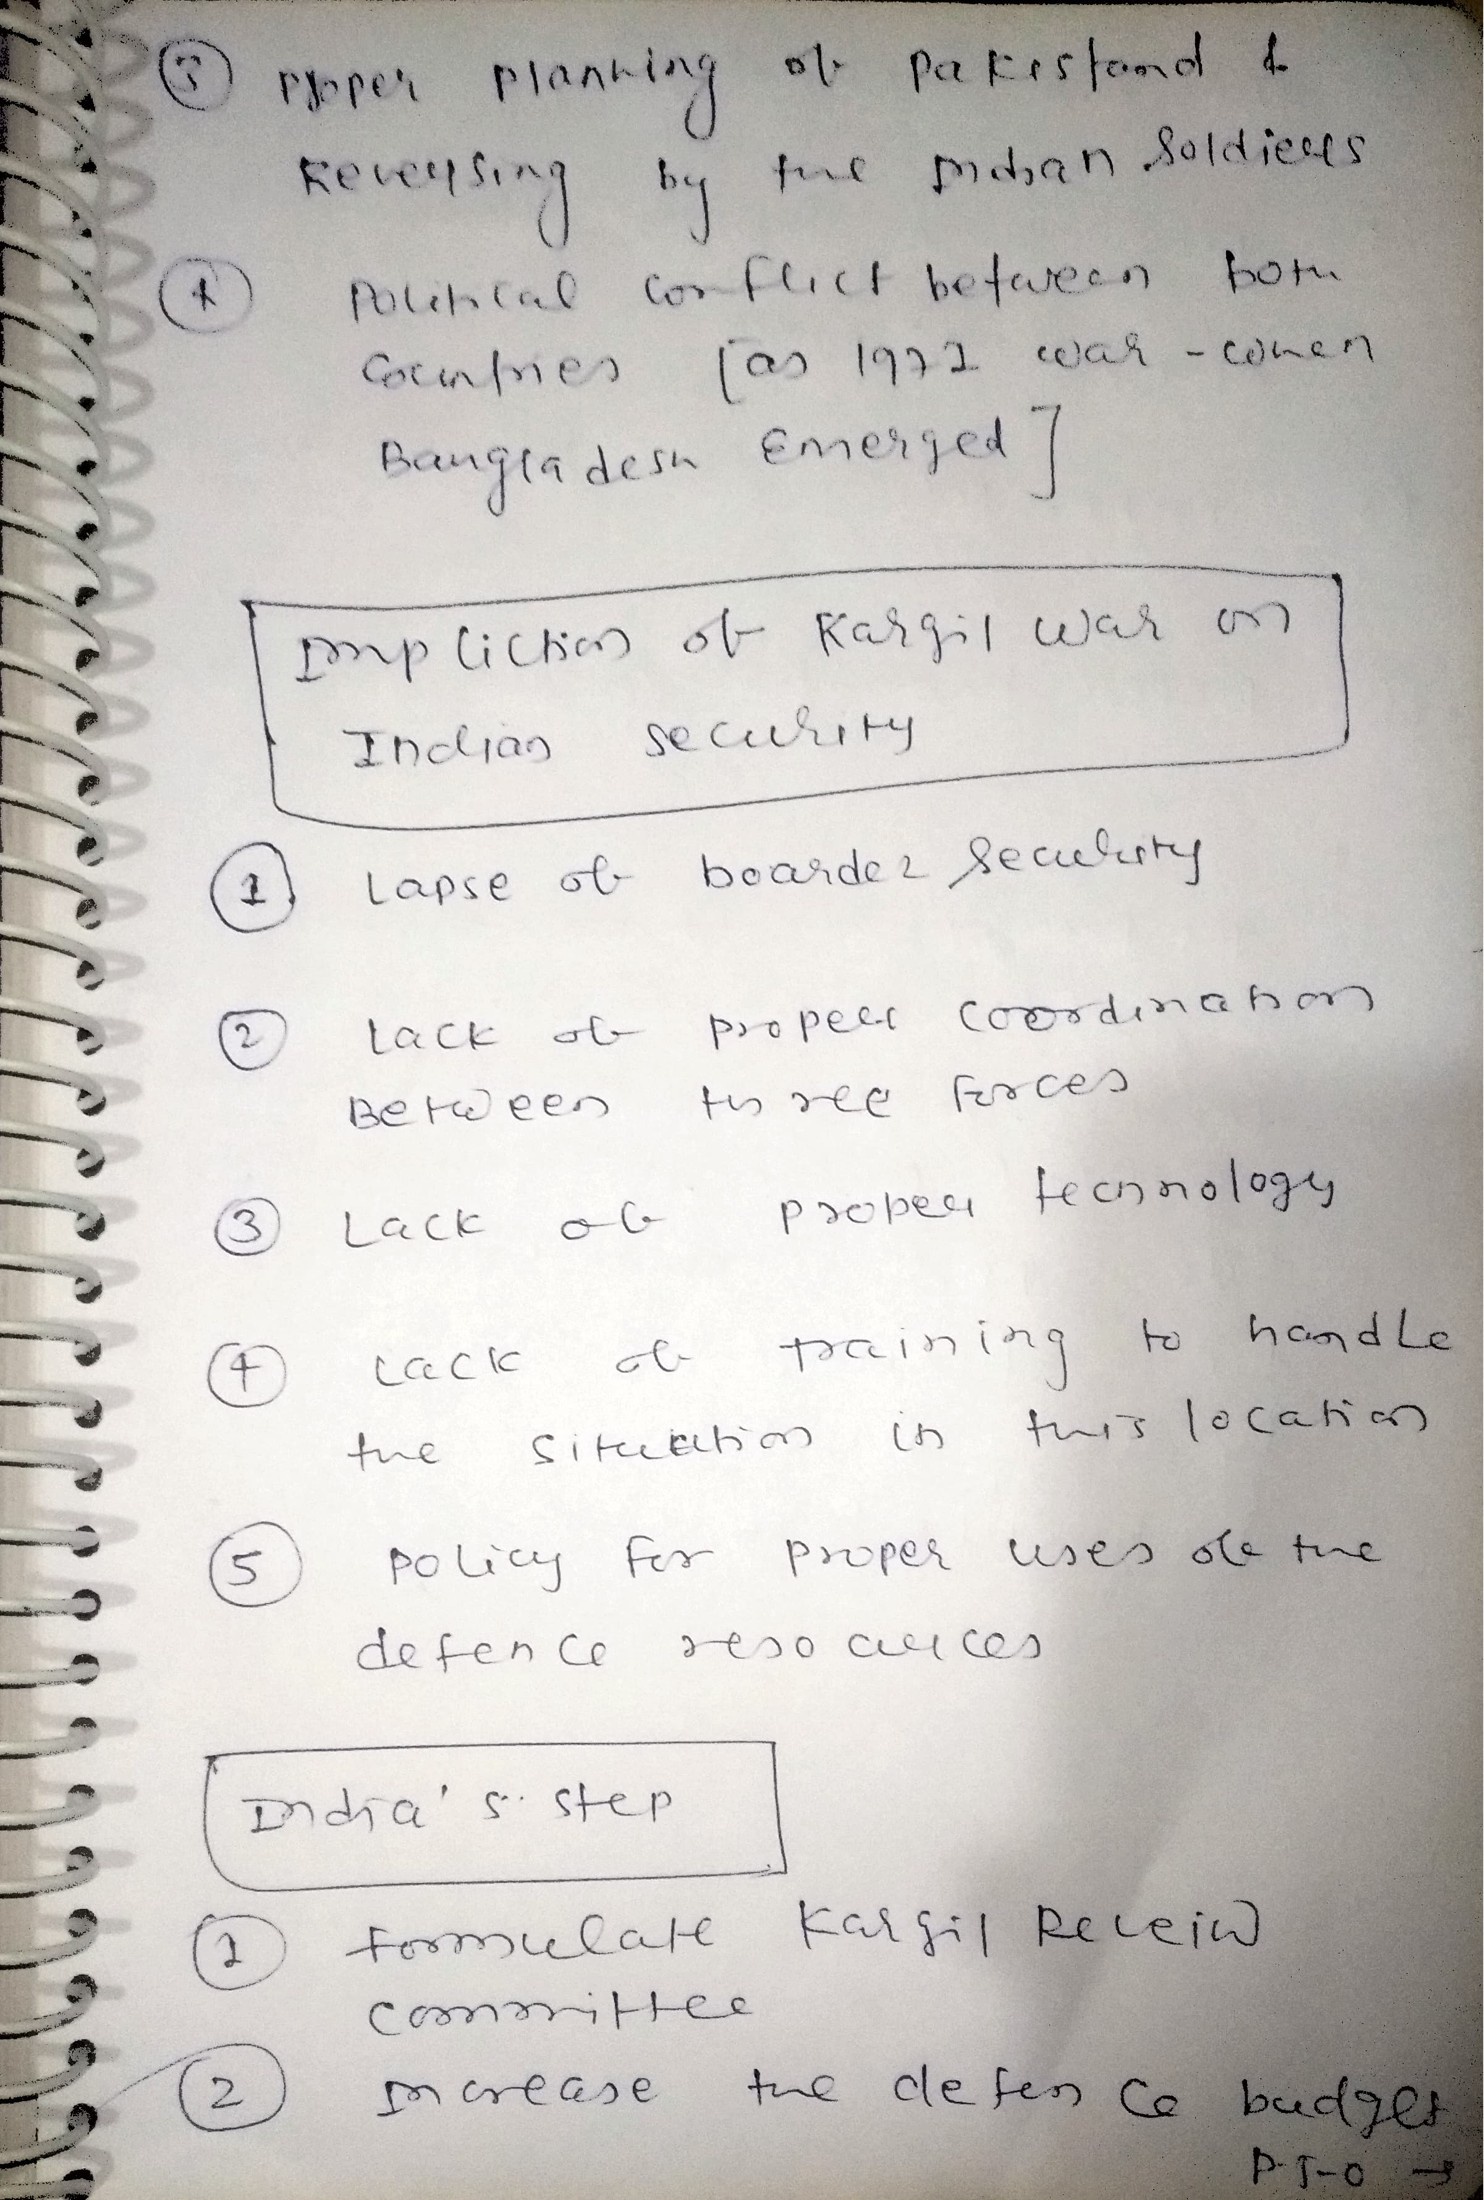 ③ Proper planning of Pakistand &
Reversing by the Indian Soldiers
④ Political Conflict between both
Countries [as 1971 war - when
Bangladesh Emerged]
Impliction of Kargil war on
Indian security
① Lapse of boarder Security
② Lack of proper coordination
Between three forces
③ Lack of proper technology
④ Lack of training to handle
the situation in this location
⑤ Policy for proper uses of the
defence resources
India's step
① Formulate Kargil Reveiw
committee
② Increase the defence budget
P.T.O →